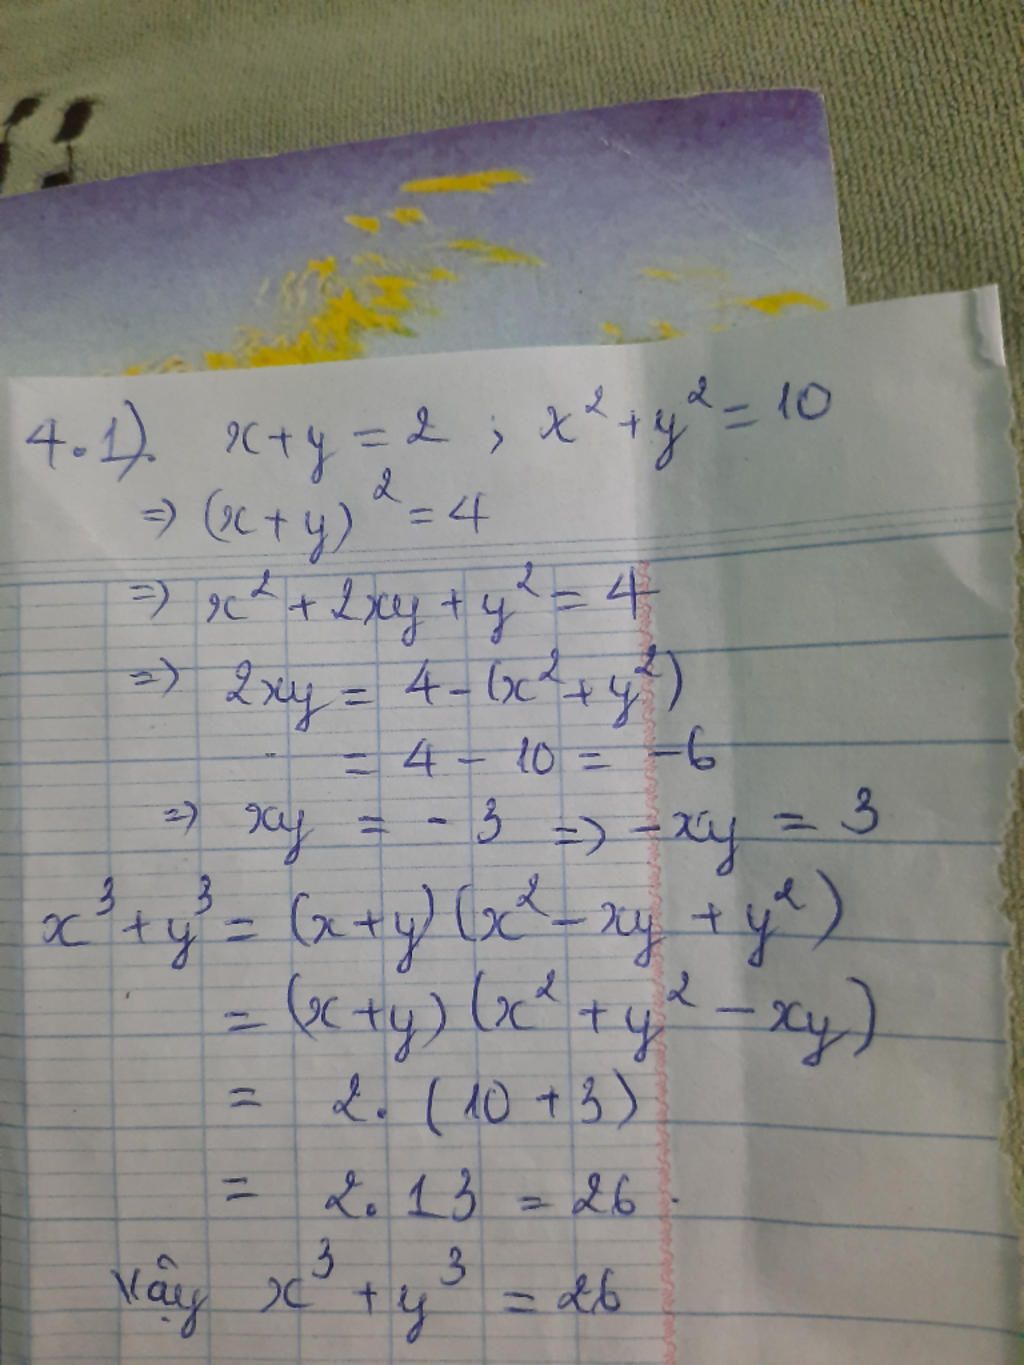 4.1). x+y = 2 ; x²+y² = 10
=> (x+y)² = 4
=> x² + 2xy + y² = 4
=> 2xy = 4 - (x² + y²)
= 4 - 10 = -6
=> xy = - 3 => -xy = 3
x³ + y³ = (x+y)(x² - xy + y²)
= (x+y)(x² + y² - xy)
= 2. (10 + 3)
= 2. 13 = 26.
Vậy x³ + y³ = 26